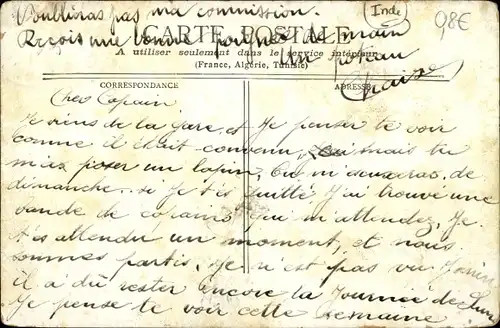 oublieras pas ma commission.
Reçois une bonne poignée de main
Un poteau
Inde
98€
CARTE POSTALE
A utiliser seulement dans le service intérieur
(France, Algérie, Tunisie)
CORRESPONDANCE
ADRESSE
Cher Copain
Je viens de la gare, et Je penser te voir
comme il était convenu, mais tu
m'as poser un lapin, tu m'excuseras, de
dimanche, si je t'ai quitté J'ai trouvé une
bande de copains, qui m'attendez, Je
t'ai attendu un moment, et nous
sommes partis, Je n'est pas vu
il a dû rester encore la Journée de
Je pense te voir cette semaine